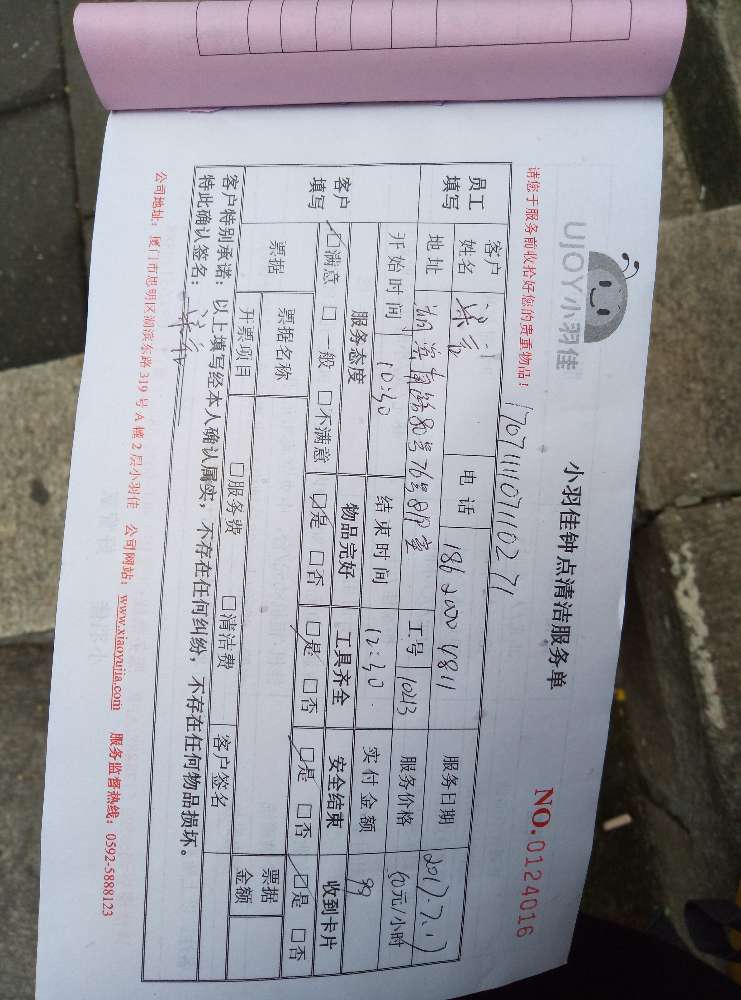 UJOY小羽佳
小羽佳钟点清洁服务单
NO.0124016
请您于服务前收拾好您的贵重物品！
170711107110271
员工填写
客户姓名
电话 186 2000 4811
服务日期 2017.7.17
地址
工号 1043
服务价格
元/小时
开始时间 10:30
结束时间 12:30
实付金额 99
客户填写
服务态度 物品完好 工具齐全 安全结束 收到卡片
□满意 □一般 □不满意 □是 □否 □是 □否 □是 □否 □是 □否
票据
票据名称
票据金额
开票项目 □服务费 □清洁费 客户签名
客户特别承诺：以上填写经本人确认属实，不存在任何纠纷，不存在任何物品损坏。
特此确认签名：
公司地址：厦门市思明区湖滨东路319号A楼2层小羽佳 公司网站：www.xiaoyujia.com 服务监督热线：0592-5888123